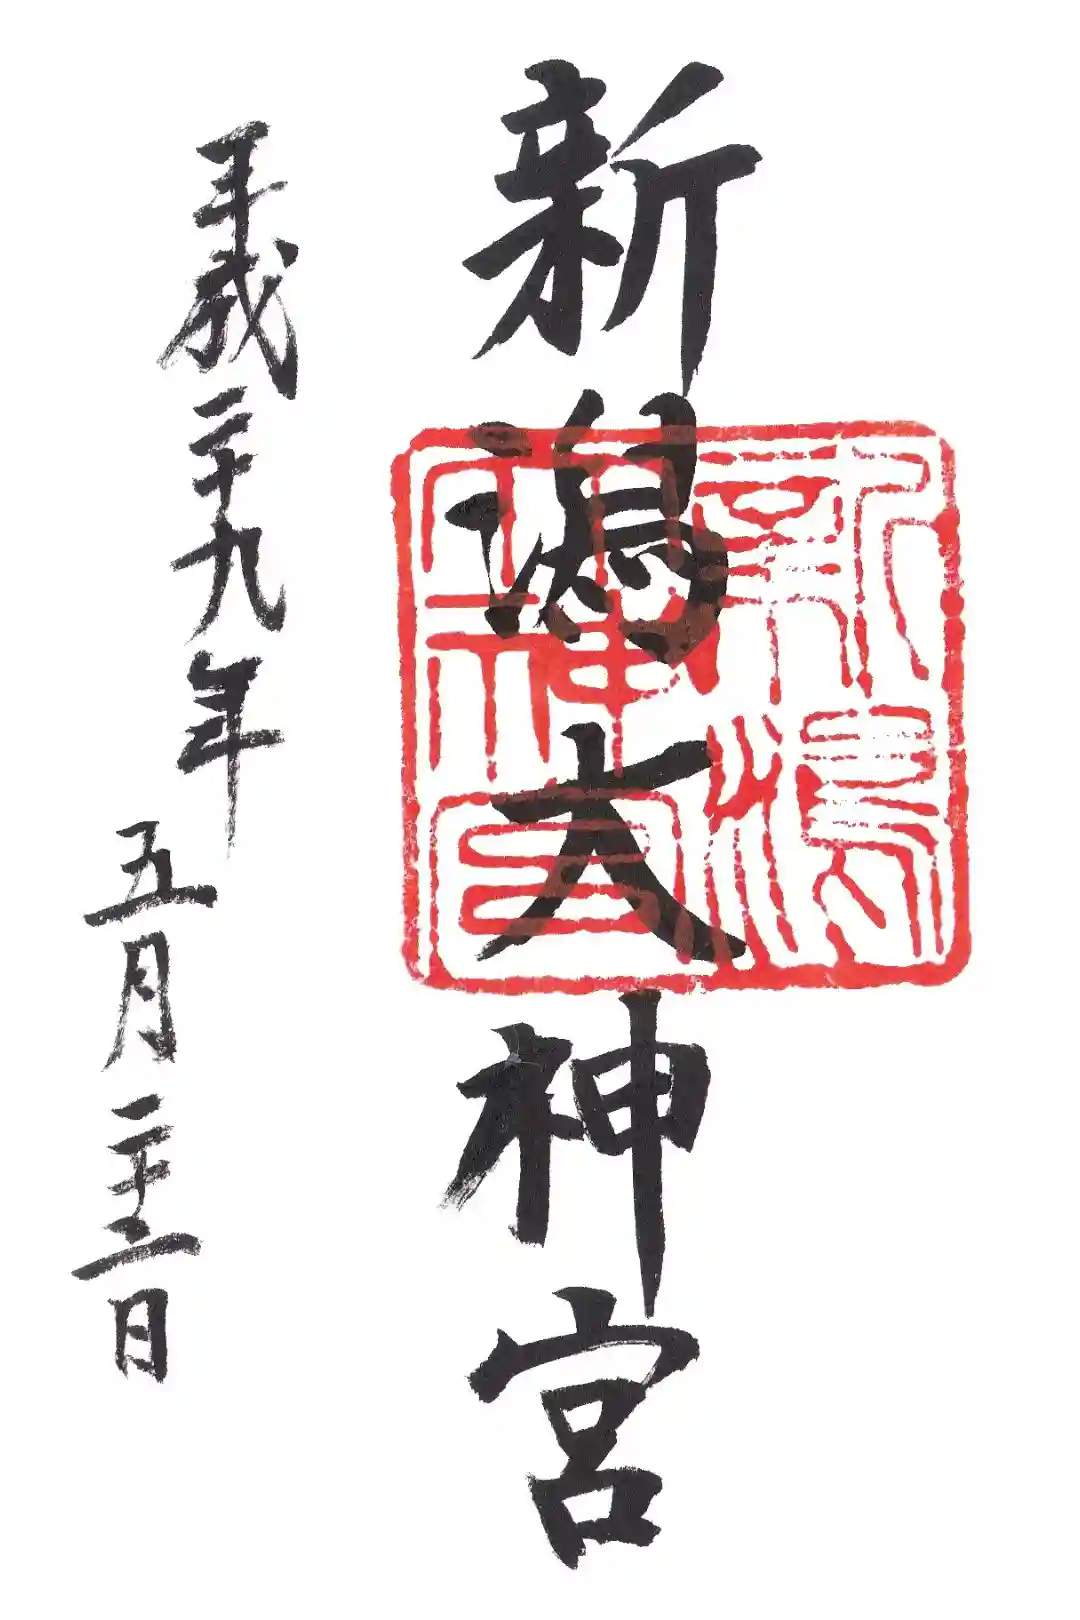 新潟大神宮
平成二十九年
五月二十二日
新潟